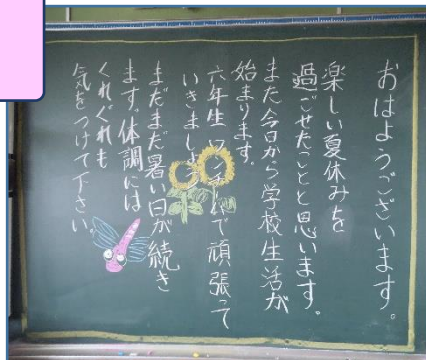 おはようございます。
楽しい夏休みを
過ごせたことと思います。
また今日から学校生活が
始まります。
六年生ワンチームで頑張って
いきましょう。
まだまだ暑い日が続き
ます。体調には
くれぐれも
気をつけて下さい。